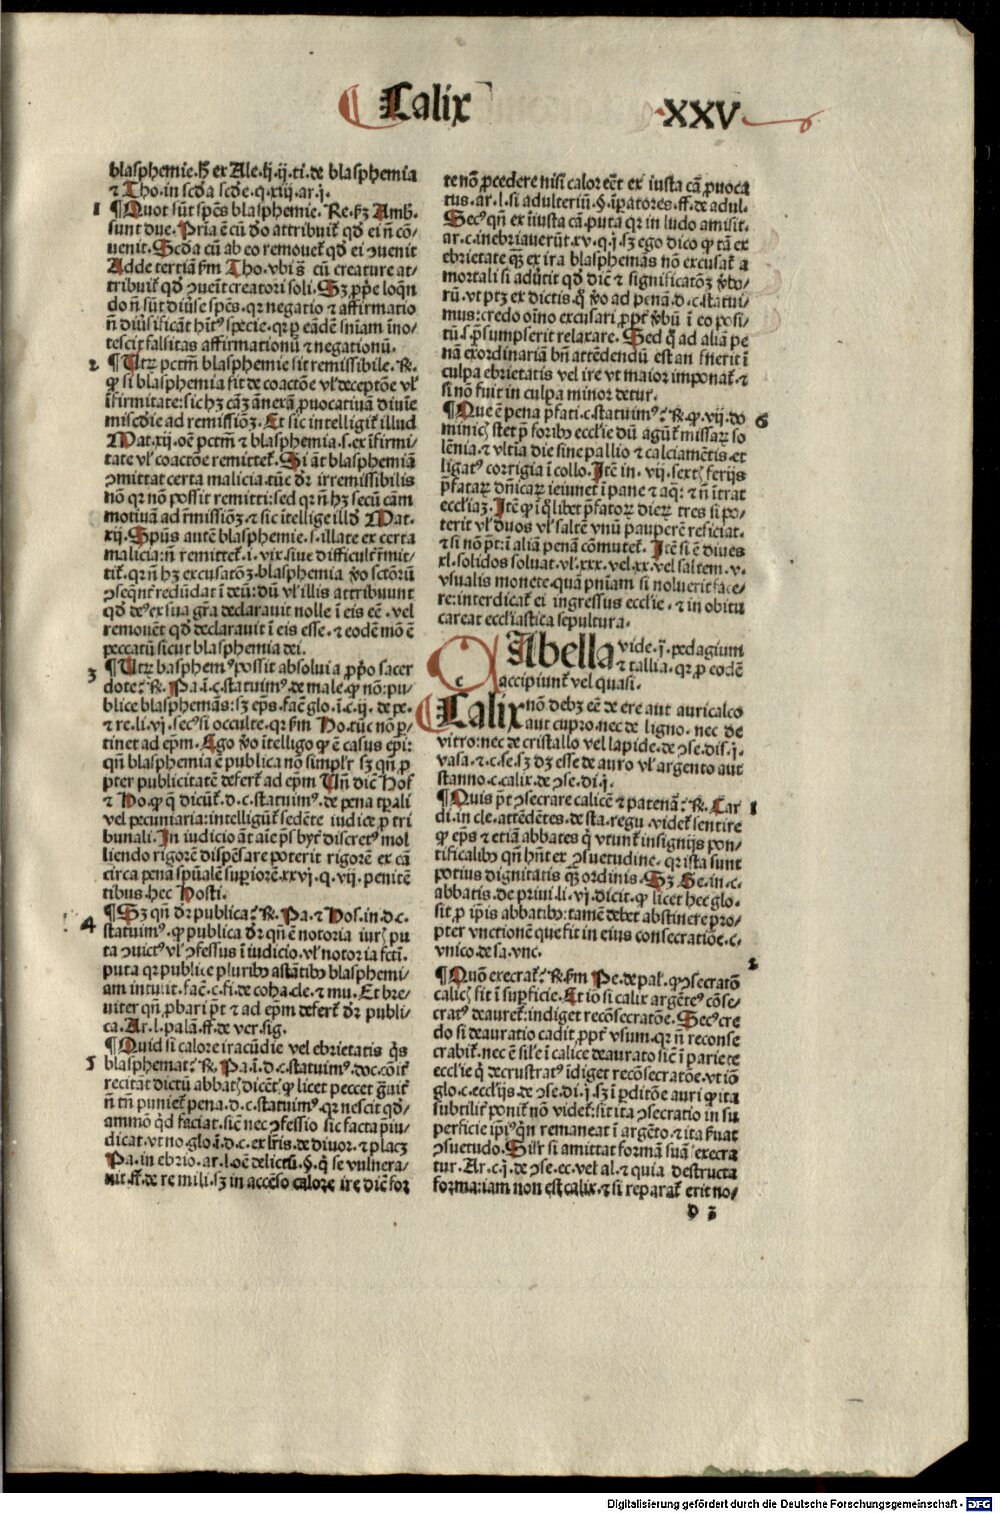 Calix
XXV
blasphemie. h̄ ex Ale. q̄. ij. ti. de blasphemia
⁊ Tho. in scd̄a scd̄e. q. xiij. ar. j.
1 ¶Quot sūt spēs blasphemie. Re. ẜm Amb.
sunt due. Pria ē cū do attribuit̄ qd̄ ei n̄ cō/
uenit. Scd̄a cū ab eo remouet̄ qd̄ ei ɔuenit
Adde tertiā ẜm Tho. vbi s̄. cū creature at/
tribuit̄ qd̄ ɔuēit creatori soli. Sꝫ ꝓpe loqn̄
do n̄ sūt diūse spēs. qr negatio ⁊ affirmatio
n̄ diūsificāt hn̄tꝰ specie. qr ꝑ eādē sniam ino/
tescit falsitas affirmationū ⁊ negationū.
2 ¶Utꝝ pctm̄ blasphemie sit remissibile. R̄.
ꝙ si blasphemia fit de coactōe vl̓ deceptōe vl̓
ifirmitate: sic hꝫ cāꝫ ānexā ꝓuocatiuā diuie
miscdie ad remissiōꝫ. Et sic intelligit̄ illud
Mat. xij. oē pctm̄ ⁊ blasphemia. s. ex ifirmi/
tate vl̓ coactōe remittet̄. Si āt blasphemiā
ɔmittat certa malicia. tūc dr̄ irremissibilis
nō qr nō possit remitti: sed qr n̄ hꝫ secū cām
motiuā ad r̄missiōꝫ. ⁊ sic itellige illd̄ Mat.
xij. Spūs autē blasphemie. s. illate ex certa
malicia: n̄ remittet̄. i. vix siue difficult̄ r̄mit/
tit̄. qr n̄ hꝫ excusatōꝫ. blasphemia v̓o sctōrū
ɔseqn̄t redūdat i deū: dū vl̓ illis attribuunt
qd̄ deꝰ ex sua gr̄a declarauit nolle i eis eē. vel
remouēt qd̄ declarauit i eis esse. ⁊ eodē mō ē
peccatū sicut blasphemia dei.
3 ¶Utꝝ basphemꝰ possit absolui a ꝓpo sacer
dote: R̄. Pa. i. c. statuimꝰ. de male. ꝙ nō: pu/
blice blasphemās: sꝫ ep̄s. fac̄ glo. i. c. ij. de pe.
⁊ re. li. vj. secꝰ si occulte. qr ẜm Ho. tūc nō ꝑ/
tinet ad ep̄m. Ego v̓o itelligo ꝙ ē casus ep̄i:
qn̄ blasphemia ē publica nō simplr̄ sꝫ qn̄ ꝓ
pter publicitatē defert̄ ad ep̄m Un̄ dic̄ Hos
⁊ Ho. ꝙ q̄ dicūt̄. d. c. statuimꝰ. de pena tꝑali
vel pecuniaria: intelligūt̄ sedēte iudice ꝓ tri
bunali. In iudicio āt aīe p̄sbyt̄ discretꝰ mol
liendo rigorē dispēsare poterit rigorē ex cā
circa pena spūalē supiorē. xxvj. q. vij. penitē
tibus. hec Hosti.
4 ¶Sꝫ qn̄ dr̄ publica: R̄. Pa. ⁊ Hos. in. d. c.
statuimꝰ. ꝙ publica dr̄ qn̄ ē notoria iur̄ pu
ta ɔuictꝰ vl̓ ɔfessus i iudicio. vl̓ notoria fcti.
puta qr publice pluribꝰ astātibꝰ blasphemi/
am intulit. fac̄. c. fi. de coha. cle. ⁊ mu. Et bre/
uiter qn̄ ꝓbari pt̄ ⁊ ad ep̄m defert̄ dr̄ publi/
ca. Ar. l. palā. ff. de ver. sig.
5 ¶Quid si calore iracūdie vel ebrietatis qs
blasphemat: R̄. Pa. i. d. c. statuimꝰ. doc. cōit̄
recitāt dictū abbatꝭ dicēt̄ ꝙ licet peccet gͣuit̄
n̄ tn̄ puniet̄ pena. d. c. statuimꝰ. qr nescit qd̄/
ammō qd̄ faciat. sicē nec ɔfessio sic facta ꝓiu/
dicat. vt no. glo. i. d. c. ex lr̄is. de diuor. ⁊ placꝫ
Pa. in ebrio. ar. l. oē delictū. §. q̄ se vulnera/
uit. ff. de re mili. sꝫ in accēso calore ire dic̄ for
te nō ꝓcedere nisi calor eēt ex iusta cā ꝓuoca
tus. ar. l. si adulteriū. §. ipatores. ff. de adul.
Secꝰ qn̄ ex iiusta cā. puta qr in ludo amisit.
ar. c. inebriauerūt. xv. q. j. sꝫ ego dico ꝙ tā ex
ebrietate qͣꝫ ex ira blasphemās nō excusat̄ a
mortali si aduūtit qd̄ dic̄ ⁊ significatōꝫ v̓bo/
rū. vt ptꝫ ex dictis. q̄ v̓o ad penā. d. c. statui/
mus: credo oīno excusari ꝓpt̄ v̓bū i eo posi/
tū. s. p̄sumpserit relaxare. Sed q̄ ad aliā pe
nā exordinariā bn̄ attēdendū est an fuerit i
culpa ebrietatis vel ire vt maior imponat̄. ⁊
si nō fuit in culpa minor detur.
6 ¶Que ē pena p̄fati. c. statuimꝰ: R̄. ꝙ. vij. do
minicꝭ stet p̄ foribꝰ eccl̄ie dū agūt̄ missaꝝ so
lēnia. ⁊ vltīa die sine pallio ⁊ calciamētis. et
ligatꝰ corrigia i collo. Itē in. vij. sextꝭ ferijs
p̄fataꝝ dn̄icaꝝ ieiunet i pane ⁊ aq̄: ⁊ n̄ itrat
eccl̄iaꝫ. Itē ꝙ i q̄libet p̄fatoꝝ dieꝝ tres si po/
terit vl̓ duos vl̓ saltē vnū pauperē reficiat.
⁊ si nō pt̄: i aliā penā cōmutet̄. Itē si ē diues
xl. solidos soluat. vl̓. xxx. vel. xx. vel saltem. v.
vsualis monete. quā pn̄iam si noluerit face/
re: interdicat̄ ei ingressus eccl̄ie. ⁊ in obitu
careat eccl̄iastica sepultura.
c Abella vide. j. pedagium
⁊ tallia. qr ꝓ eodē
accipiunt̄ vel quasi.
Calix nō debꝫ eē de ere aut auricalco
aut cupro. nec de ligno. nec de
vitro: nec de cristallo vel lapide. de ɔse. dis. j.
vasa. ⁊. c. se. sꝫ dꝫ esse de auro vl̓ argento aut
stanno. c. calix. de ɔse. di. j.
1 ¶Quis pt̄ ɔsecrare calicē ⁊ patenā: R̄. Car
di. in cle. attēdētes. de sta. regu. videt̄ sentire
ꝙ ep̄s ⁊ etiā abbates q̄ vtunt̄ insignijs pon/
tificalibꝰ qn̄ hn̄t ex ɔsuetudine. qr ista sunt
potius dignitatis qͣꝫ ordinis. Sꝫ Ge. in. c.
abbatis. de priui. li. vj. dicit. ꝙ licet hec glo.
sit ꝓ ipis abbatibꝰ: tamē debet abstinere pro/
pter vnctionē que fit in eius consecratiōe. c.
vnico. de sa. vnc.
2 ¶Quō execrat̄: R̄. ẜm Pe. de pal. ꝙ ɔsecratō
calicꝭ fit i supficie. Et iō si calix argētꝰ cōse/
cratꝰ deauret̄: indiget recōsecratōe. Secꝰ cre
do si deauratio cadit ꝓpt̄ vsum. qr n̄ reconse
crabit̄. nec ē sile i calice deaurato sic̄ i pariete
eccl̄ie q̄ decrustratꝰ idiget recōsecratōe. vt iō
glo. c. eccl̄ijs. de ɔse. di. j. sꝫ i ꝑditōe auri q̄ ita
subtilit̄ ponit̄ nō videt̄: sit ita ɔsecratio in su
perficie ipiꝰ qn̄ remaneat i argēto. ⁊ ita ẜuat
ɔsuetudo. Silr̄ si amittat formā suā execra
tur. Ar. c. j. de ɔse. ec. vel al. ⁊ quia destructa
forma: iam non est calix. ⁊ si reparat̄ erit no/
d 3
Digitalisierung gefördert durch die Deutsche Forschungsgemeinschaft - DFG